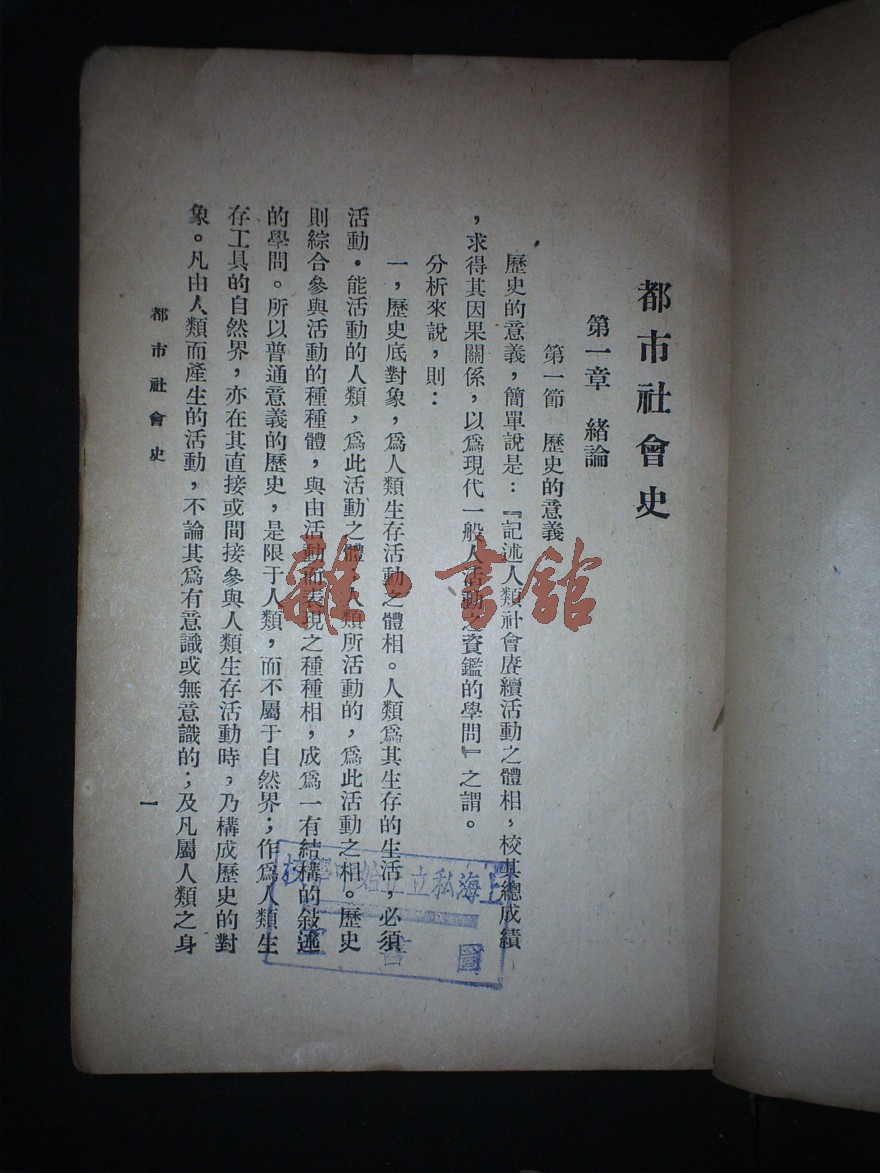 都市社會史
第一章　緒論
第一節　歷史的意義
歷史的意義，簡單說是：『記述人類社會賡續活動之體相，校其總成績
，求得其因果關係，以爲現代一般人活動之資鑑的學問』之謂。
分析來說，則：
一，歷史底對象，爲人類生存活動之體相。人類爲其生存的生活，必須
活動。能活動的人類，爲此活動之體，人類所活動的，爲此活動之相。歷史
則綜合參與活動的種種體，與由活動而表現之種種相，成爲一有結構的敍述
的學問。所以普通意義的歷史，是限于人類，而不屬于自然界；作爲人類生
存工具的自然界，亦在其直接或間接參與人類生存活動時，乃構成歷史的對
象。凡由人類而產生的活動，不論其爲有意識或無意識的；及凡屬人類之身
都市社會史
一
雜·書館
上海私立
學校
圖書室